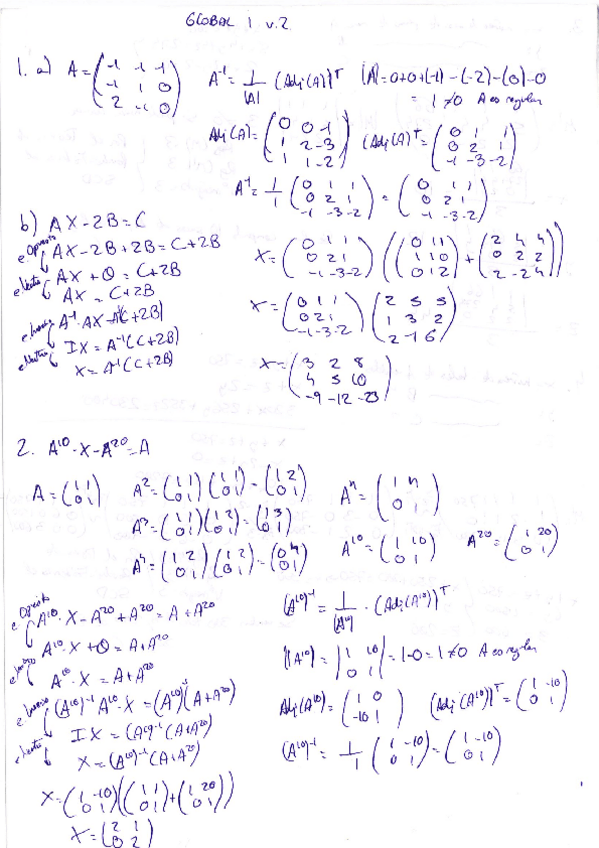 GLOBAL 1 v.2
1. a) A = (-1 -1 -1 / -1 1 0 / 2 -1 0) A⁻¹ = 1/|A| (Adj(A))ᵀ |A| = 0+0+(-1)-(-2)-(0)-0
= 1 ≠ 0 A es regular
Adj(A) = (0 0 -1 / 1 2 -3 / 1 1 -2) (Adj(A))ᵀ = (0 1 1 / 0 2 1 / -1 -3 -2)
A⁻¹ = 1/1 (0 1 1 / 0 2 1 / -1 -3 -2) = (0 1 1 / 0 2 1 / -1 -3 -2)
b) AX - 2B = C
e. Opuesto AX - 2B + 2B = C + 2B
e. Neutro AX + O = C + 2B
AX = C + 2B
e. Inverso A⁻¹·AX = A⁻¹(C + 2B)
e. Neutro IX = A⁻¹(C + 2B)
X = A⁻¹(C + 2B)
X = (0 1 1 / 0 2 1 / -1 -3 -2) ((0 1 1 / 1 1 0 / 0 1 2) + (2 4 4 / 0 2 2 / 2 -2 4))
X = (0 1 1 / 0 2 1 / -1 -3 -2) (2 5 5 / 1 3 2 / 2 -1 6)
X = (3 2 8 / 4 5 10 / -9 -12 -23)
2. A¹⁰·X - A²⁰ = A
A = (1 1 / 0 1) A² = (1 1 / 0 1)(1 1 / 0 1) = (1 2 / 0 1) Aⁿ = (1 n / 0 1)
A³ = (1 1 / 0 1)(1 2 / 0 1) = (1 3 / 0 1)
A⁴ = (1 2 / 0 1)(1 2 / 0 1) = (0 4 / 0 1) A¹⁰ = (1 10 / 0 1) A²⁰ = (1 20 / 0 1)
e. Opuesto A¹⁰·X - A²⁰ + A²⁰ = A + A²⁰
A¹⁰·X + O = A + A²⁰
A¹⁰·X = A + A²⁰
e. Inverso (A¹⁰)⁻¹ A¹⁰·X = (A¹⁰)⁻¹(A + A²⁰)
e. Neutro IX = (A¹⁰)⁻¹(A + A²⁰)
X = (A¹⁰)⁻¹(A + A²⁰)
X = (1 -10 / 0 1)((1 1 / 0 1) + (1 20 / 0 1))
X = (2 1 / 0 2)
(A¹⁰)⁻¹ = 1/|A¹⁰| · (Adj(A¹⁰))ᵀ
|A¹⁰| = |1 10 / 0 1| = 1-0 = 1 ≠ 0 A es regular
Adj(A¹⁰) = (1 0 / -10 1) (Adj(A¹⁰))ᵀ = (1 -10 / 0 1)
(A¹⁰)⁻¹ = 1/1 (1 -10 / 0 1) = (1 -10 / 0 1)